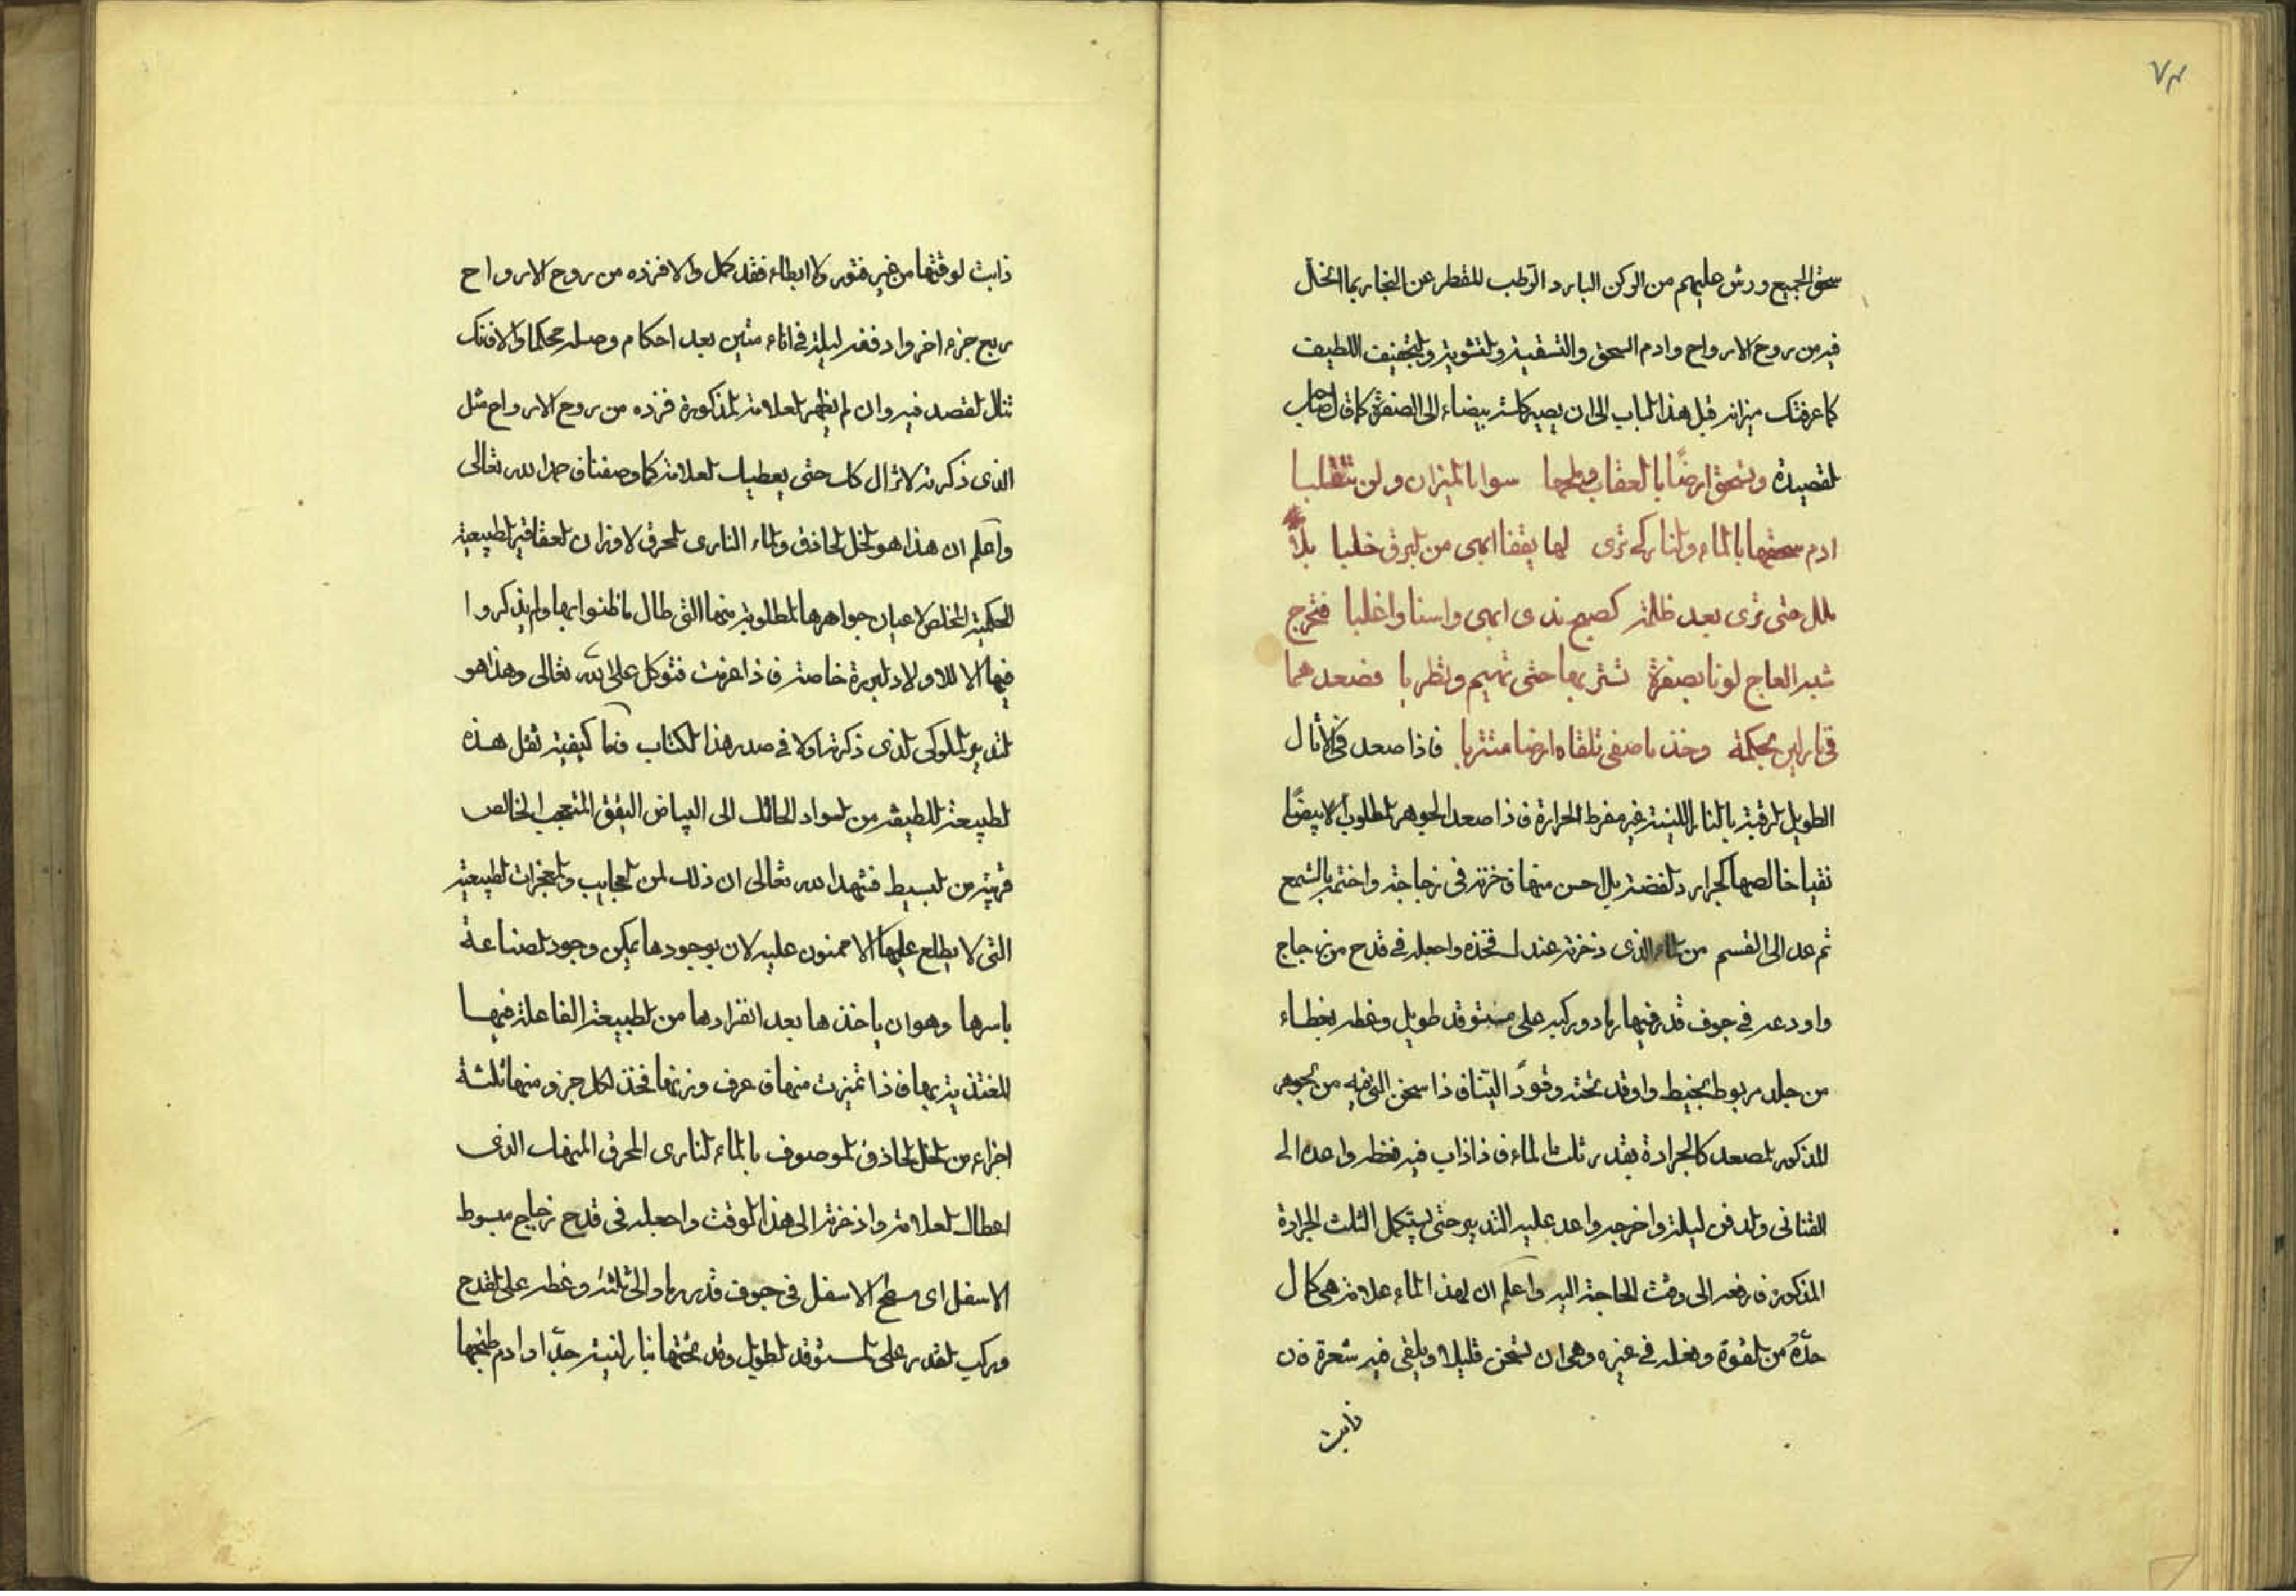 ٧٣
سحق الجميع ورش عليهم من الركن البارد الرطب المقطر عن البخار بما انحل
فيه من روح الارواح وادم السحق والتسقية والتشوية والتجفيف اللطيف
كما عرفتك ميزانه قبل هذا الباب الى ان يصير كلسه بيضاء الى الصفرة كما قال صاحب
القصيدة وتسحق ارضا بالعقاب وملحها سوا بالميزان ولن تتقلبا
ادم سحقها بالماء والنار كي ترى لها يققا ابهى من البرق خلبا بلا
ملل حتى ترى بعد ظلمة كصبح ندى ابهى واسنا واغلبا فتخرج
شبه العاج لونا بصفرة تشربها حتى تهيم وتطربا فصعدهما
في بارلين محكمة وخذ ما صفى تلقاه ارضا متتربا فاذا صعد في الاثال
الطويل الرقبة بالنار اللينة غير مفرط الحرارة فاذا صعد الجوهر المطلوب الابيضا
نقيا خالصها كجرارد الفضة بل احسن منها فاخزنه في زجاجة واختم بالشمع
ثم عد الى القسم من الماء الذي ذخرته عندك فخذه واجعله في قدح من زجاج
واودعه في جوف قدر فيها رماد وركبه على مستوقد طويل وغطه بغطاء
من جلد مربوط بخيط واوقد تحته وقودا لينا فاذا سخن الق فيه من الجوهر
المذكور المصعد كالجرادة بقدر ثلث الماء فاذا ذاب فيه فغطه واعده الى
القناني والدفن ليلة واخرجه واعد عليه التدبير حتى يستكمل الثلث الجرادة
المذكورة فارفعه الى وقت الحاجة اليه واعلم ان لهذا الماء علامة هي كمال
حده من القوة وفعله في غيره وهي ان تسخن قليلا ويلقى فيه شعرة فان
ذابت
ذابت لوقتها من غير فتور ولا ابطاء فقد كمل والا فزده من روح الارواح
ربع جزء اخر وادفنه ليلة في اناء متين بعد احكام وصله محكما والا فتك
تنال القصد فيه وان لم يظهر العلامة المذكورة فزده من روح الارواح مثل
الذي ذكرته لا تزال كك حتى يعطيك العلامة كما وصفنا فاحمد الله تعالى
واعلم ان هذا هو الخل الحاذق والماء الناري المحرق لاوزان العقاقير الطبيعية
الحكمية المخلص لاعيان جواهرها المطلوبة منها التي طال ما ظنوا بها ولم يذكروا
فيها الا للاولاد البررة خاصة فاذا عرفت فتوكل على الله تعالى وهذا هو
التدبير الملوكي الذي ذكرته اولا في صدر هذا الكتاب فاما كيفية نقل هذه
الطبيعة اللطيفة من السواد الحالك الى البياض اليقق المتعجب الخالص
قريبة من البسيط فنشهد الله تعالى ان ذلك لمن العجايب والمعجزات الطبيعية
التي لا يطلع عليها الا ممنون عليه لان بوجودها يمكن وجود الصناعة
باسرها وهو ان ياخذها بعد انفرادها من الطبيعة الفاعلة فيها
المغتذية بها فاذا تميزت منها فاعرف وزنها فخذ لكل جزو منها ثلثة
اجزاء من الخل الحاذق الموصوف بالماء الناري المحرق المنهك الذي
اعطاك العلامة واذخرته الى هذا الوقت واجعله في قدح زجاج مبسوط
الاسفل اي مسطح الاسفل في جوف قدر رماد الى ثلثه وغطه على القدح
وركب القدر على المستوقد الطويل وقد تحتها نارا لينة جدا وادم طبخها